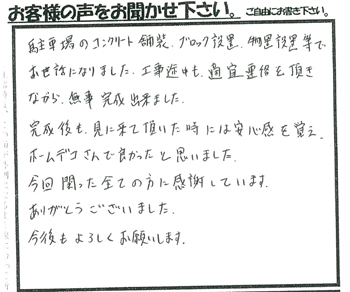 お客様の声をお聞かせ下さい。ご自由にお書き下さい。
駐車場のコンクリート舗装、ブロック設置、物置設置等で
お世話になりました。工事途中も、適宜連絡を頂き
ながら、無事完成出来ました。
完成後も、見に来て頂いた時には安心感を覚え、
ホームデコさんで良かったと思いました。
今回関った全ての方に感謝しています。
ありがとうございました。
今後もよろしくお願いします。